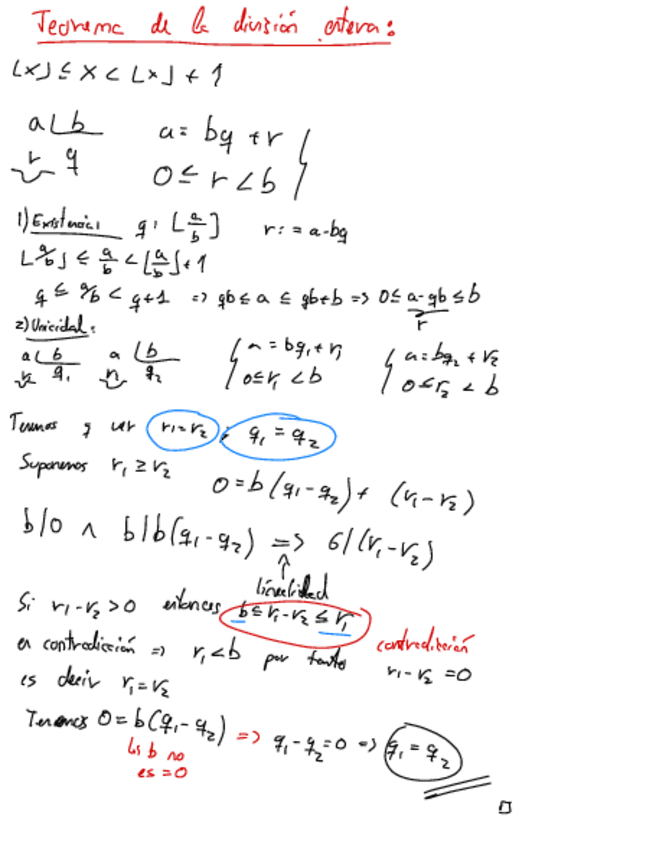 Teorema de la división entera:
⌊x⌋ ≤ x < ⌊x⌋ + 1
a ⌊ b    a = bq + r
r  q    0 ≤ r < b
1) Existencia: q: ⌊a/b⌋    r := a - bq
⌊a/b⌋ ≤ a/b < ⌊a/b⌋ + 1
q ≤ a/b < q+1 => qb ≤ a ≤ qb+b => 0 ≤ a-qb ≤ b
r
2) Unicidad:
a ⌊ b    a ⌊ b    a = bq₁ + r₁    a = bq₂ + r₂
r₂ q₁    r₁ q₂    0 ≤ r₁ < b    0 ≤ r₂ < b
Tenemos q ver r₁ = r₂ ; q₁ = q₂
Suponemos r₁ ≥ r₂    0 = b(q₁ - q₂) + (r₁ - r₂)
b/0 ∧ b/b(q₁ - q₂) => b/(r₁ - r₂)
linealidad
Si r₁ - r₂ > 0 entonces b ≤ r₁ - r₂ ≤ r₁
en contradicción => r₁ < b por tanto contradicción
es decir r₁ = r₂    r₁ - r₂ = 0
Tenemos 0 = b(q₁ - q₂) => q₁ - q₂ = 0 => q₁ = q₂
b no
es = 0